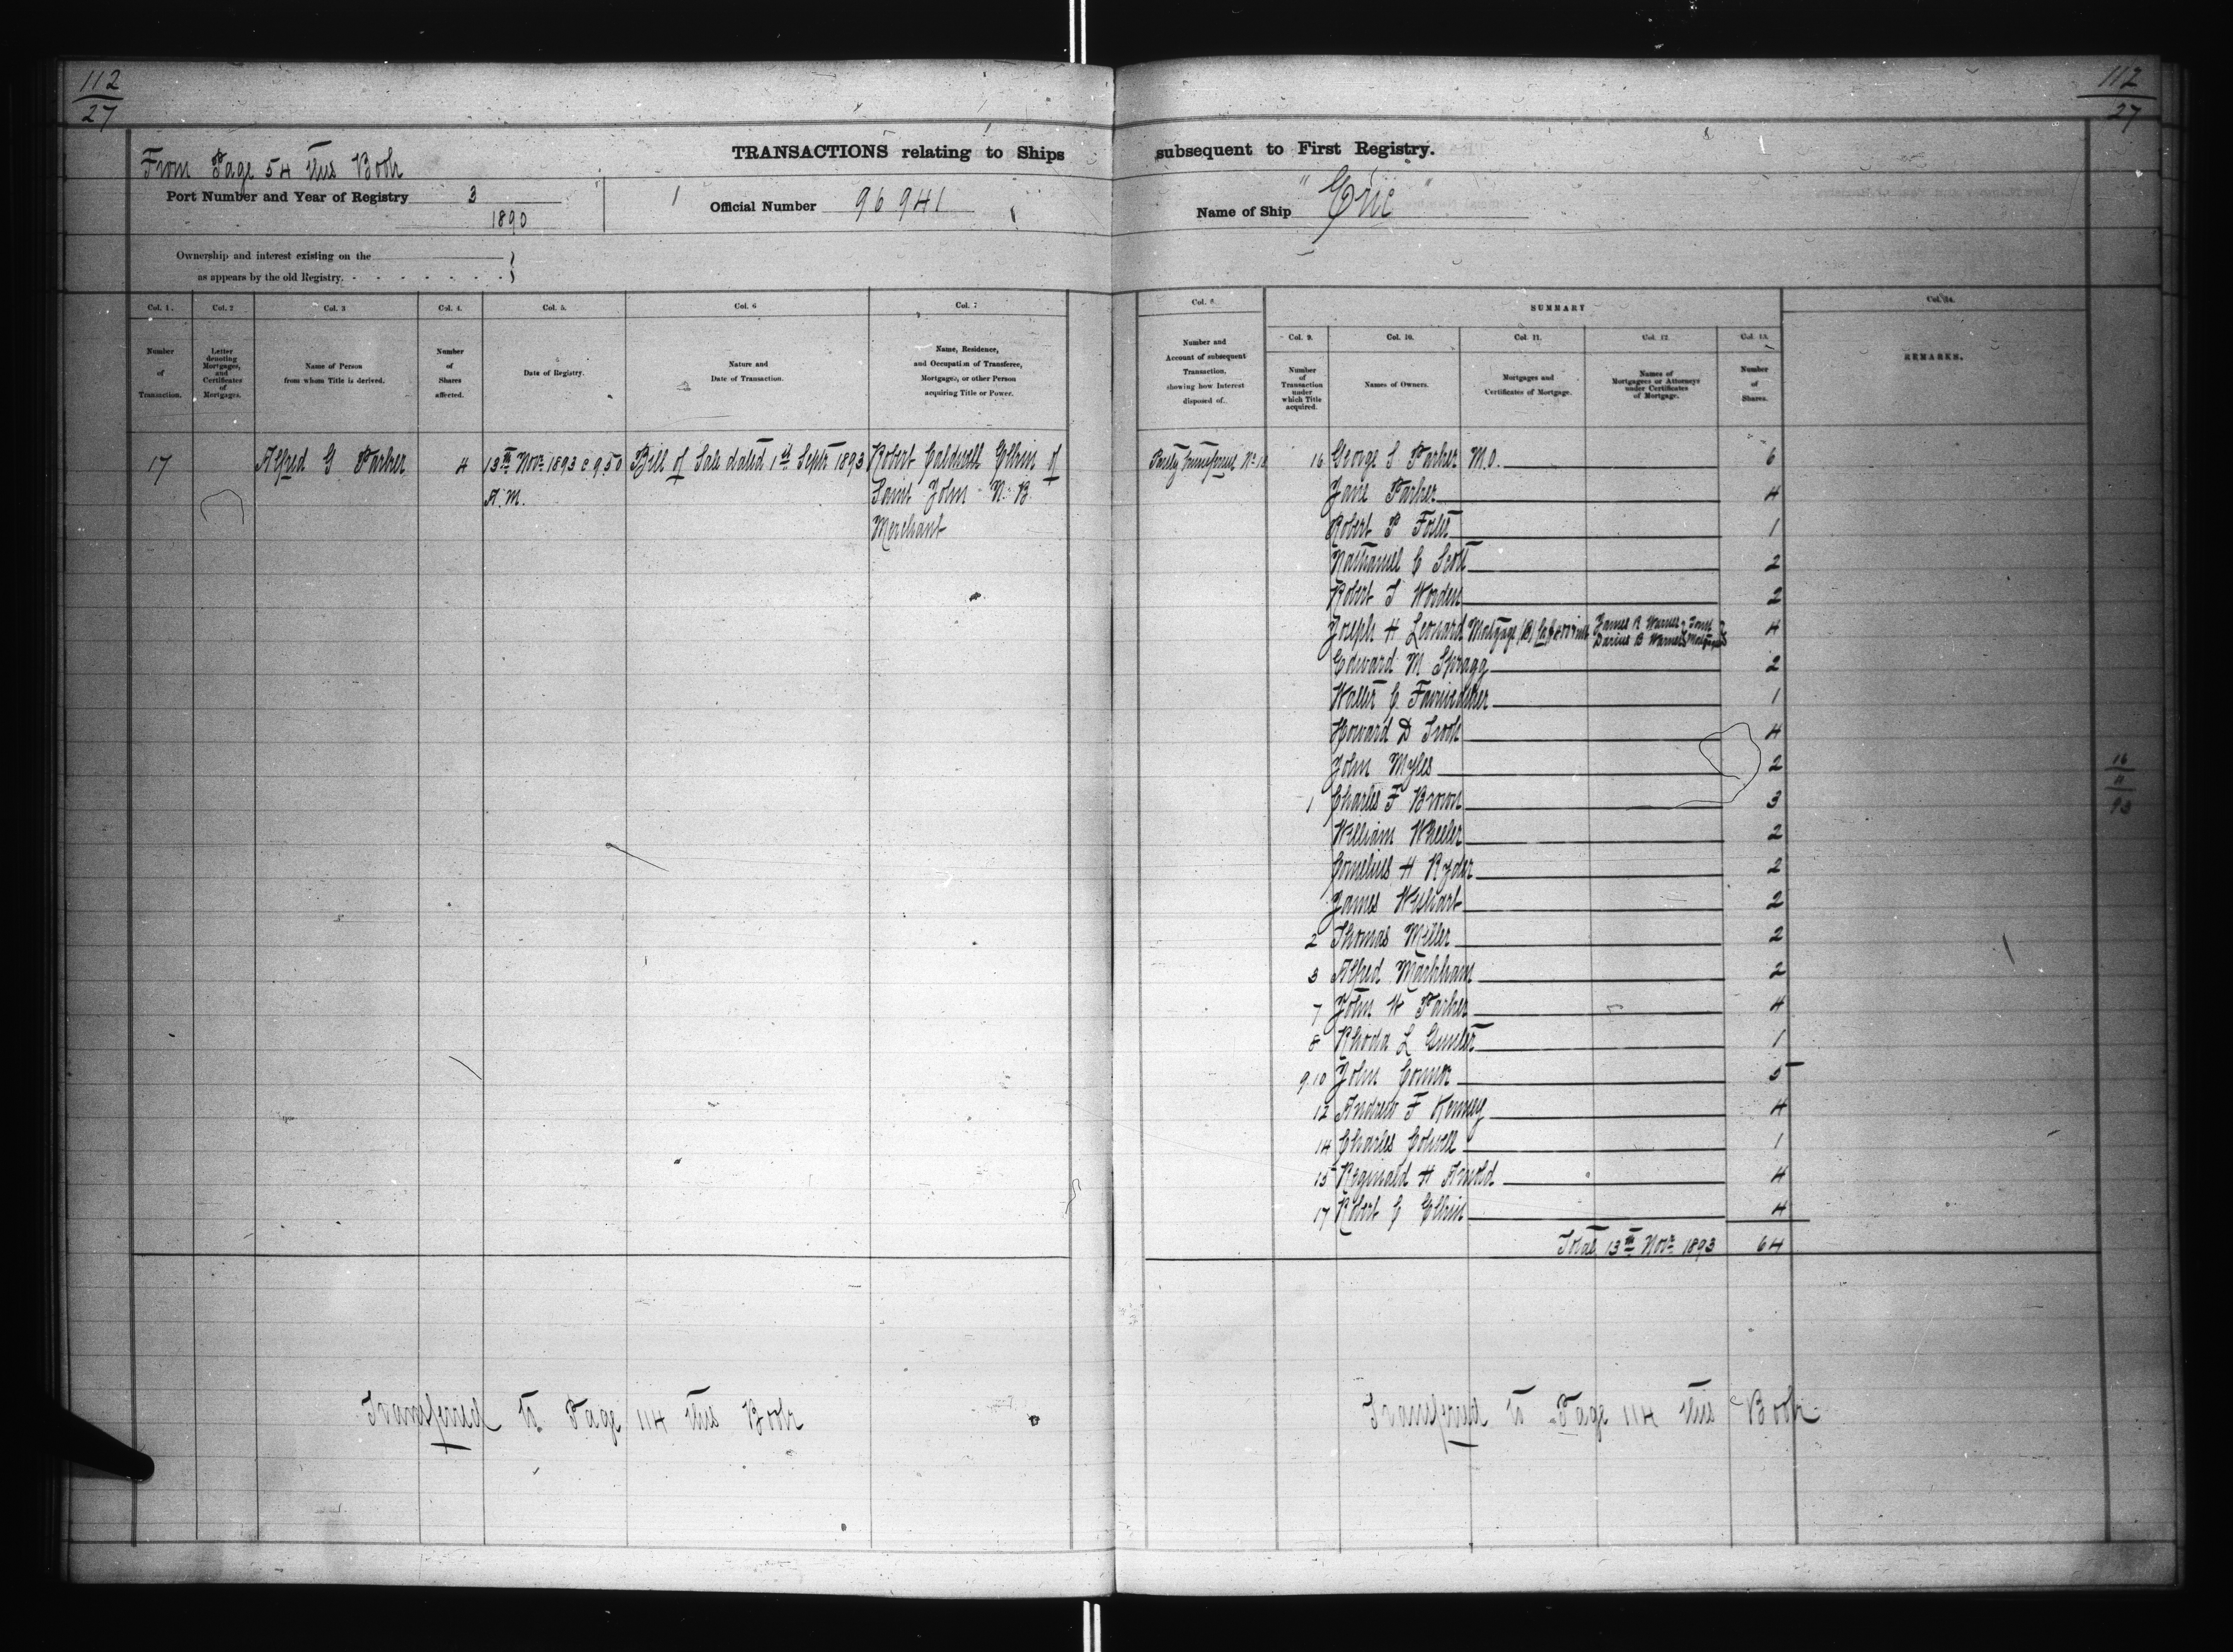 112
27
112
27
From Page 54 this Book
TRANSACTIONS relating to Ships subsequent to First Registry.
Port Number and Year of Registry 3
1890
Official Number 96 941
Name of Ship "Eric"
Ownership and interest existing on the
as appears by the old Registry.
Col. 1. Col. 2 Col. 3 Col. 4. Col. 5. Col. 6 Col. 7
Number
of
Transaction.
Letter
denoting
Mortgages,
and
Certificates
of
Mortgages.
Name of Person
from whom Title is derived.
Number
of
Shares
affected.
Date of Registry.
Nature and
Date of Transaction.
Name, Residence,
and Occupation of Transferee,
Mortgagee, or other Person
acquiring Title or Power.
17 Alfred G Parker 4 13th Novr 1893 @ 9.50 Bill of Sale dated 1st Septr 1893 Robert Caldwell Elkin of
A.M. Saint John N.B.
Merchant
Transferred to Page 114 this Book
Col. 8
Number and
Account of subsequent
Transaction,
showing how Interest
disposed of.
SUMMARY
Col. 9. Col. 10. Col. 11. Col. 12 Col. 13. Col. 14.
Number
of
Transaction
under
which Title
acquired.
Names of Owners.
Mortgages and
Certificates of Mortgage.
Names of
Mortgagees or Attorneys
under Certificates
of Mortgage.
Number
of
Shares.
REMARKS.
16 George S Parker M.O. 6
Jane Parker 4
Robert P Foster 1
Nathaniel C Scott 2
Robert S Worden 2
Joseph H Leonard Mortgage (B) James R Warner & Joint
Darius B Warner Mortgagees 4
Edward M Spragg 2
Walter C Fairweather 1
Howard D Troop 4
John Myles 2
1 Charles F Brown 3
William Wheeler 2
Cornelius H Ryder 2
James Wishart 2
2 Thomas Miller 2
3 Alfred Markham 2
7 John W Parker 4
8 Rhoda L Gunter 1
9.10 John Connor 5
12 Andrew F Kenney 4
14 Charles Colwell 1
15 Reginald H Arnold 4
17 Robert C Elkin 4
Total 13th Novr 1893 64
16
11
93
Transferred to Page 114 this Book